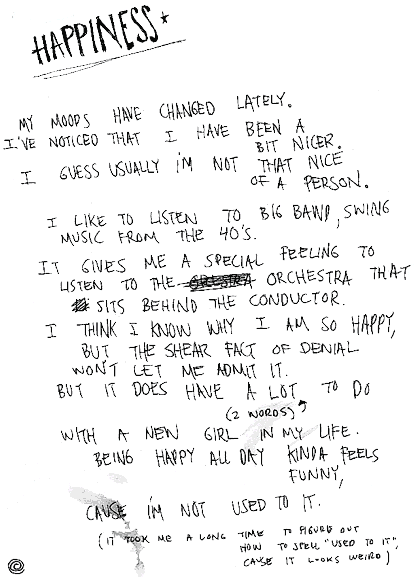 HAPPINESS*
MY MOODS HAVE CHANGED LATELY.
I'VE NOTICED THAT I HAVE BEEN A
BIT NICER.
I GUESS USUALLY I'M NOT THAT NICE
OF A PERSON.
I LIKE TO LISTEN TO BIG BAND, SWING
MUSIC FROM THE 40'S.
IT GIVES ME A SPECIAL FEELING TO
LISTEN TO THE ORCHESTRA THAT
SITS BEHIND THE CONDUCTOR.
I THINK I KNOW WHY I AM SO HAPPY,
BUT THE SHEAR FACT OF DENIAL
WON'T LET ME ADMIT IT.
BUT IT DOES HAVE A LOT TO DO
(2 WORDS)
WITH A NEW GIRL IN MY LIFE.
BEING HAPPY ALL DAY KINDA FEELS
FUNNY,
CAUSE I'M NOT USED TO IT.
(IT TOOK ME A LONG TIME TO FIGURE OUT
HOW TO SPELL "USED TO IT",
CAUSE IT LOOKS WEIRD)
©